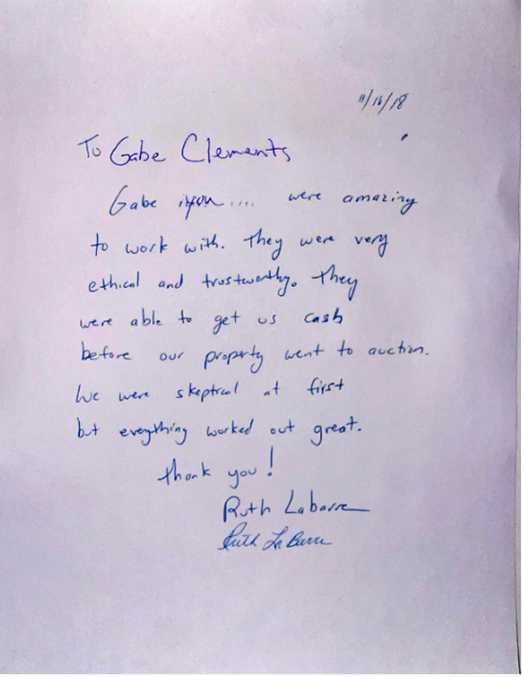 11/16/18
To Gabe Clements
Gabe you.... were amazing
to work with. They were very
ethical and trustworthy. They
were able to get us cash
before our property went to auction.
We were skeptical at first
but everything worked out great.
Thank you!
Ruth Labarre
Ruth LaBarre